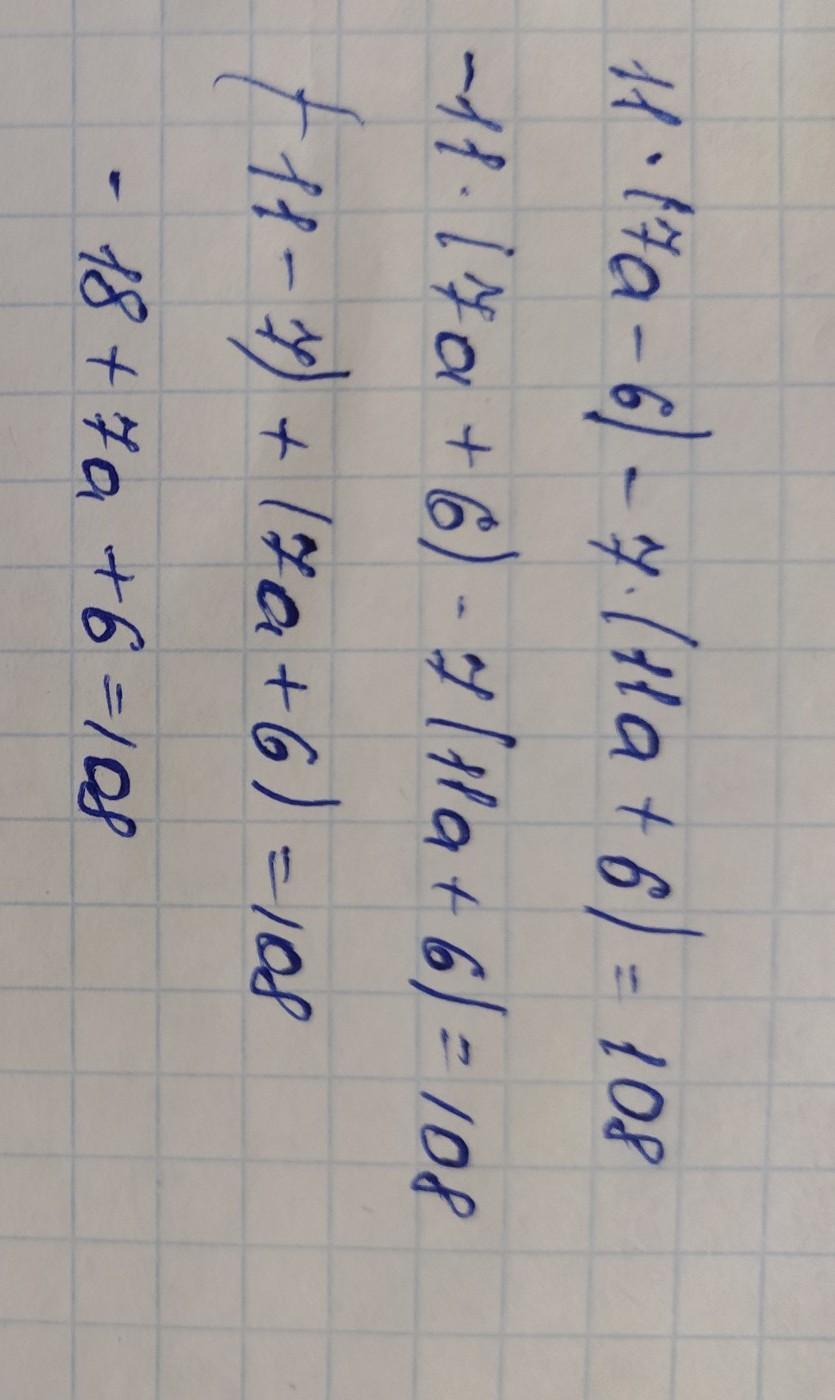 11·(7a-6)-7·(11a+6)=108
-11·(7a+6)-7(11a+6)=108
(-11-7)+(7a+6)=108
-18+7a+6=108